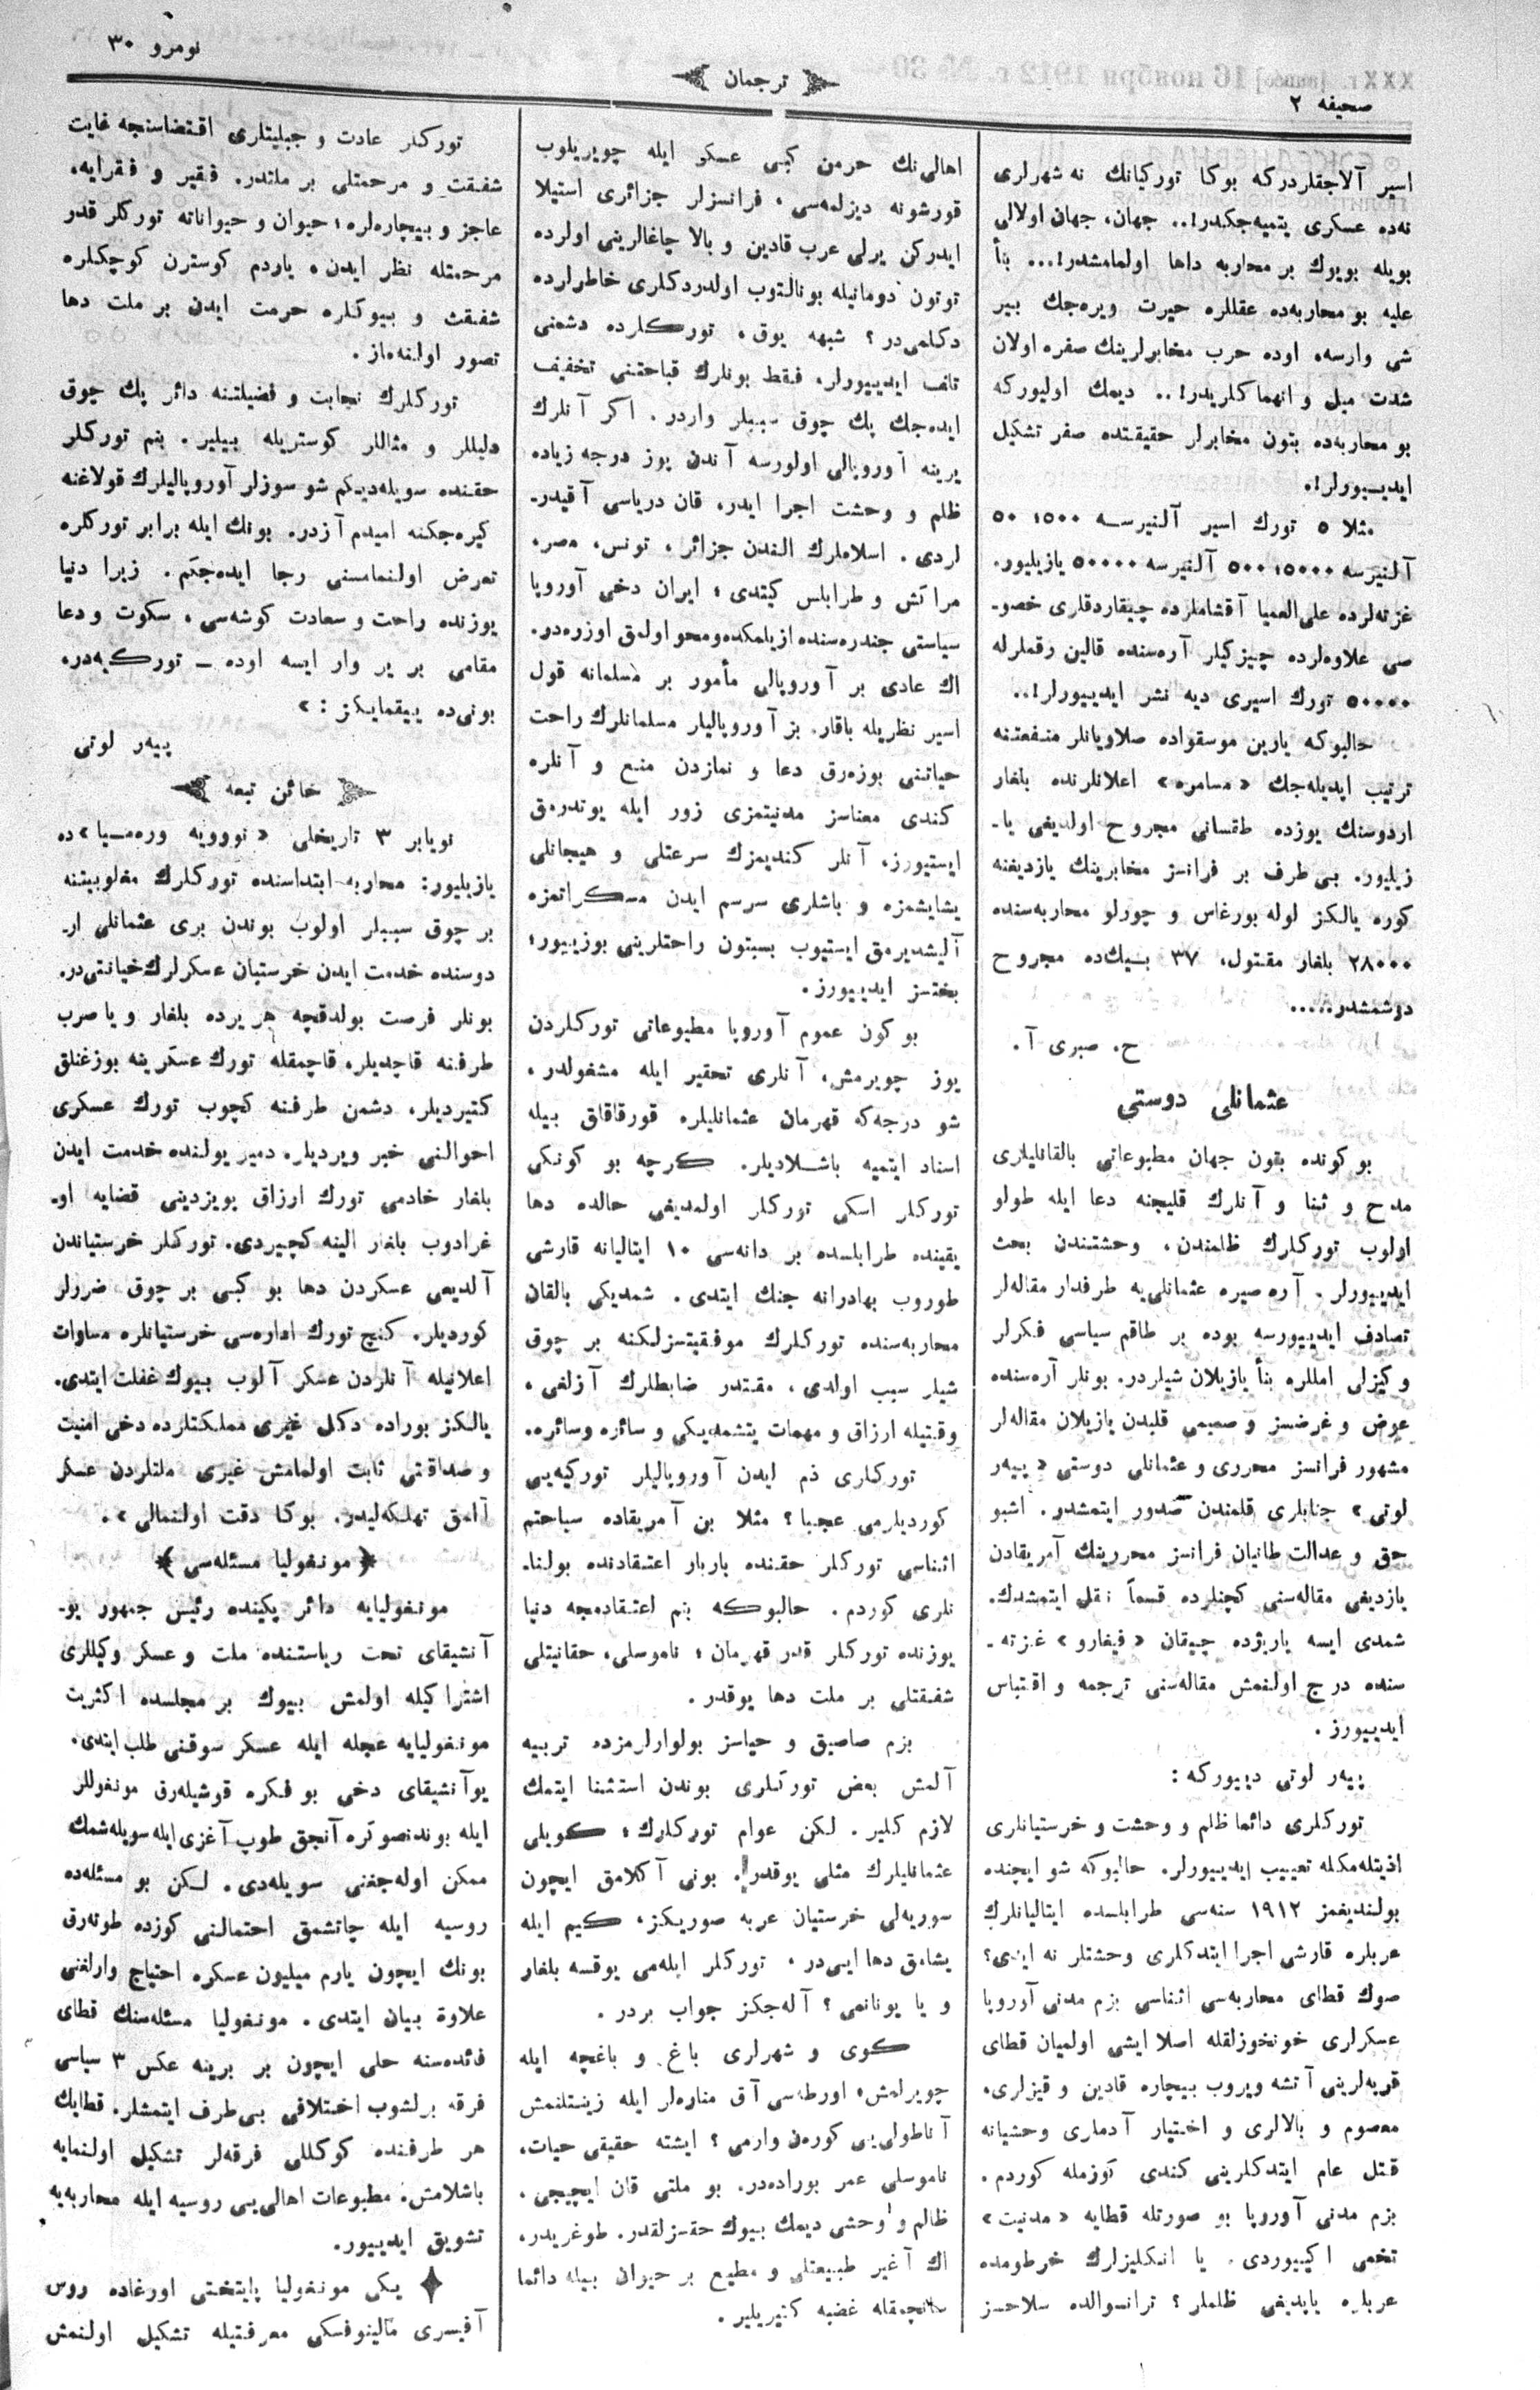 نومرو ۳۰
ترجمان
صحیفه ۲
اسیر آلاجقلردركه بوكا توركیانك نه شهرلری
نه‌ده عسكری یتمیه‌جكدر!.. جهان، جهان اولالی
بویله بویوك بر محاربه داها اولمامشدر!... بنأ
علیه بو محاربه‌ده عقللره حیرت ویره‌جك بیر
شی وارسه، اوده حرب مخابرلرینك صفره اولان
شدت میل و انهماكلریدر!.. دیمك اولیوركه
بو محاربه‌ده بتون مخابرلر حقیقتده صفر تشكیل
ایدیــیورلر!.
مثلا ۵ تورك اسیر آلنیرسـه ۱۵۰۰، ۵۰
آلنیرسه ۱۵۰۰۰، ۵۰۰ آلنیرسه ۵۰۰۰۰ یازیلیور.
غزته‌لرده علی‌العمیا آقشاملرده چیقاردقلری خصو-
صی علاوه‌لرده چیزكیلر آره‌سنده قالین رقملرله
۵۰۰۰۰ تورك اسیری دیه نشر ایدییورلر!..
حالبوكه یارین موسقواده صلاویانلر منفعتنه
ترتیب ایدیله‌جك «مسامره» اعلانلرنده بلغار
اردوسنك یوزده طقسانی مجروح اولدیغی یا-
زیلیور. بی‌طرف بر فرانسز مخابرینك یازدیغنه
كوره یالكز لوله بورغاس و چورلو محاربه‌سنده
۲۸۰۰۰ بلغار مقتول، ۳۷ بـیك‌ده مجروح
دوشمشدر.....
ح. صبری آ.
عثمانلی دوستی
بو كونده بتون جهان مطبوعاتی بالقانلیلری
مدح و ثنا و آنلرك قلیجنه دعا ایله طولو
اولوب توركلرك ظلمندن، وحشتندن بحث
ایدییورلر. آره صیره عثمانلی‌یه طرفدار مقاله‌لر
تصادف ایدییورسه بوده بر طاقم سیاسی فكرلر
و كیزلی امللره بنأ یازیلان شیلردر. بونلر آره‌سنده
عوض و غرضسز و صمیمی قلبدن یازیلان مقاله‌لر
مشهور فرانسز محرری و عثمانلی دوستی «پیه‌ر
لوتی» جنابلری قلمندن صدور ایتمشدر. اشبو
حق و عدالت طانیان فرانسز محررینك آمریقادن
یازدیغی مقاله‌سنی كچنلرده قسماً نقل ایتمشدك.
شمدی ایسه پاریژده چیقان «فیغارو» غزته-
سنده درج اولنمش مقاله‌سنی ترجمه و اقتباس
ایدییورز.
پیه‌ر لوتی دییوركه:
توركلری دائما ظلم و وحشت و خرستیانلری
اذیتله‌مكله تعییب ایدییورلر. حالبوكه شو ایچنده
بولندیغمز ۱۹۱۲ سنه‌سی طرابلسده ایتالیانلرك
عربلره قارشی اجرا ایتدكلری وحشتلر نه ایدی؟
صوك قطای محاربه‌سی اثناسی بزم مدنی آوروپا
عسكرلری خونخوزلقله اصلا ایشی اولمیان قطای
قریه‌لرینی آتشه ویروب بیچاره قادین و قیزلری،
معصوم و بالالری و اختیار آدملری وحشیانه
قتل عام ایتدكلرینی كندی كوزمله كوردم.
بزم مدنی آوروپا بو صورتله قطایه «مدنیت»
تخمی اكییوردی. یا انكلیزلرك خرطومده
عربلره یاپدیغی ظلملر؟ ترانسوالده سلاحسز
اهالی‌نك خرمن كبی عسكر ایله چویریلوب
قورشونه دیزلمه‌سی، فرانسزلر جزائری استیلا
ایدركن یرلی عرب قادین و بالا چاغالرینی اولرده
توتون دومانیله بونالتوب اولدردكلری خاطرلرده
دكلمی‌در؟ شبهه یوق، توركلرده دشمنی
تلف ایدییورلر، فقط بونلرك قباحتنی تخفیف
ایده‌جك پك چوق سببلر واردر. اكر آنلرك
یرینه آوروپالی اولورسه آندن یوز درجه زیاده
ظلم و وحشت اجرا ایدر، قان دریاسی آقیدر-
لردی. اسلاملرك الندن جزائر، تونس، مصر،
مراكش و طرابلس كیتدی؛ ایران دخی آوروپا
سیاستی جندره‌سنده ازیلمكده‌ومحو اولمق اوزره‌در.
اك عادی بر آوروپالی مأمور بر مسلمانه قول
اسیر نظریله باقار. بز آوروپالیلر مسلمانلرك راحت
حیاتنی بوزه‌رق دعا و نمازدن منع و آنلره
كندی معناسز مدنیتمزی زور ایله یوتدرمق
ایستیورز، آنلر كندیمزك سرعتلی و هیجانلی
یشایشمزه و باشلری سرسم ایدن مسكراتمزه
آلیشدیرمق ایستیوب بسبتون راحتلرینی بوزییور؛
بختسز ایدییورز.
بو كون عموم آوروپا مطبوعاتی توركلردن
یوز چویرمش، آنلری تحقیر ایله مشغولدر،
شو درجه‌كه قهرمان عثمانلیلره قورقاقلق بیله
اسناد ایتمیه باشـلادیلر. كرچه بو كونكی
توركلر اسكی توركلر اولمدیغی حالده دها
یقینده طرابلسده بر دانه‌سی ۱۰ ایتالیانه قارشی
طوروب بهادرانه جنك ایتدی. شمدیكی بالقان
محاربه‌سنده توركلرك موفقیتسزلكنه بر چوق
شیلر سبب اولدی، مقتدر ضابطلرك آزلغی،
وقتیله ارزاق و مهمات یتشمدیكی و سائره وسائره.
توركلری ذم ایدن آوروپالیلر توركیه‌یی
كوردیلرمی عجبا؟ مثلا بن آمریقاده سیاحتم
اثناسی توركلر حقنده باربار اعتقادنده بولنا-
نلری كوردم. حالبوكه بنم اعتقادمجه دنیا
یوزنده توركلر قدر قهرمان؛ ناموسلی، حقانیتلی
شفقتلی بر ملت دها یوقدر.
بزم صاصیق و حیاسز بولوارلرمزده تربیه
آلمش بعض توركلری بوندن استثنا ایتمك
لازم كلیر. لكن عوام توركلرك؛ كویلی
عثمانلیلرك مثلی یوقدر!. بونی آكلامق ایچون
سوریه‌لی خرستیان عربه صوریكز، كیم ایله
یشامق دها ایی‌در. توركلر ایله‌می یوقسه بلغار
و یا یونانمی؟ آله‌جكز جواب بردر.
كوی و شهرلری باغ و باغچه ایله
چویرلمش، اورطه‌سی آق مناره‌لر ایله زینتلنمش
آناطولی‌یی كوره‌ن وارمی؟ ایشته حقیقی حیات،
ناموسلی عمر بوراده‌در. بو ملتی قان ایچیجی،
ظالم و وحشی دیمك بیوك حقسزلقدر. طوغریدر،
اك آغیر طبیعتلی و مطیع بر حیوان بیله دائما
سانچمقله غضبه كتیریلیر.
توركلر عادت و جبلیتلری اقتضاسنجه غایت
شفقت و مرحمتلی بر ملتدر. فقیر و فقرایه،
عاجز و بیچاره‌لره؛ حیوان و حیواناته توركلر قدر
مرحمتله نظر ایدن، یاردم كوسترن كوچكلره
شفقت و بیوكلره حرمت ایدن بر ملت دها
تصور اولنه‌ماز.
توركلرك نجابت و فضیلتنه دائر پك چوق
دلیللر و مثاللر كوستریله بیلیر. بنم توركلر
حقنده سویله‌دیكم شو سوزلر آوروپالیلرك قولاغنه
كیره‌جكنه امیدم آزدر. بونك ایله برابر توركلره
تعرض اولنمامسنی رجا ایده‌جكم. زیرا دنیا
یوزنده راحت و سعادت كوشه‌سی، سكوت و دعا
مقامی بر یر وار ایسه اوده ــ توركیه‌در.
بونی‌ده ییقمایكز: »
پیه‌ر لوتی
خائن تبعه
نویابر ۳ تاریخلی «نوویه وره‌مـیا»ده
یازیلیور: محاربه ابتداسنده توركلرك مغلوبیتنه
بر چوق سببلر اولوب بوندن بری عثمانلی ار-
دوسنده خدمت ایدن خرستیان عسكرلرك خیانتی‌در.
بونلر فرصت بولدقچه هر یرده بلغار و یا صرب
طرفنه قاچدیلر، قاچمقله تورك عسكرینه بوزغنلق
كتیردیلر، دشمن طرفنه كچوب تورك عسكری
احوالنی خبر ویردیلر. دمیر یولنده خدمت ایدن
بلغار خادمی تورك ارزاق پویزدینی قضایه او-
غرادوب بلغار الینه كچیردی. توركلر خرستیاندن
آلدیغی عسكردن دها بو كبی بر چوق ضررلر
كوردیلر. كنج تورك اداره‌سی خرستیانلره مساوات
اعلانیله آنلردن عسكر آلوب بیوك غفلت ایتدی.
یالكز بوراده دكل غیری مملكتلرده دخی امنیت
و صداقتی ثابت اولمامش غیری ملتلردن عسكر
آلمق تهلكه‌لیدر. بوكا دقت اولنمالی».
﴿مونغولیا مسئله‌سی﴾
مونغولیایه دائر پكینده رئیس جمهور یو-
آنشیقای تحت ریاستنده ملت و عسكر وكیللری
اشتراكیله اولمش بیوك بر مجلسده اكثریت
مونغولیایه عجله ایله عسكر سوقنی طلب ایتدی.
یوآنشیقای دخی بو فكره قوشیله‌رق مونغوللر
ایله بوندنصوكره آنجق طوپ آغزی ایله سویله‌شمك
ممكن اوله‌جغنی سویله‌دی. لكن بو مسئله‌ده
روسیه ایله چاتشمق احتمالنی كوزده طوته‌رق
بونك ایچون یارم میلیون عسكره احتیاج وارلغنی
علاوة بیان ایتدی. مونغولیا مسئله‌سنك قطای
فائده‌سنه حلی ایچون بر برینه عكس ۳ سیاسی
فرقه برلشوب اختلافی بی‌طرف ایتمشلر. قطایك
هر طرفنده كوكللی فرقه‌لر تشكیل اولنمایه
باشلامش. مطبوعات اهالی‌یی روسیه ایله محاربه‌یه
تشویق ایدییور.
یكی مونغولیا پایتختی اورغاده روس
آفیسری مالینوفسكی معرفتیله تشكیل اولنمش